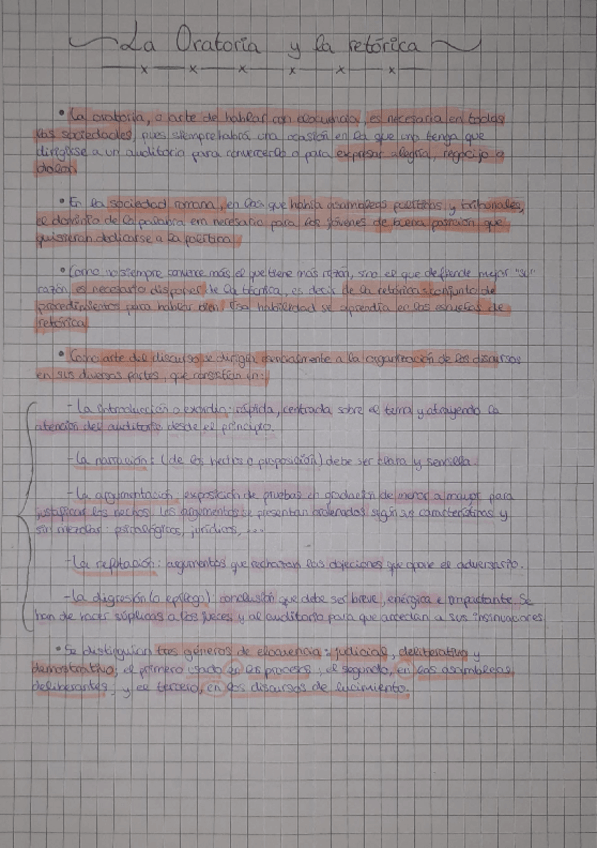 La Oratoria y la retórica
• La oratoria, o arte de hablar con elocuencia, es necesaria en todas
las sociedades, pues siempre habrá una ocasión en la que uno tenga que
dirigirse a un auditorio para convencerlo o para expresar alegría, regocijo o
dolor.
• En la sociedad romana, en las que había asambleas políticas y tribunales,
el dominio de la palabra era necesario para los jóvenes de buena posición que
quisieran dedicarse a la política.
• Como no siempre convence más el que tiene más razón, sino el que defiende mejor "su"
razón, es necesario disponer de la técnica, es decir de la retórica: conjunto de
procedimientos para hablar bien. Esa habilidad se aprendía en las escuelas de
retórica.
• Como arte del discurso se dirigía esencialmente a la organización de los discursos
en sus diversas partes, que consistían en:
- La introducción o exordio: rápida, centrada sobre el tema y atrayendo la
atención del auditorio desde el principio.
- La narración: (de los hechos o proposición) debe ser clara y sencilla.
- La argumentación, exposición de pruebas en gradación de menor a mayor para
justificar los hechos. Los argumentos se presentan ordenados según sus características y
sin mezclar: psicológicos, jurídicos, ...
- La refutación: argumentos que rechazan las objeciones que opone el adversario.
- La digresión (o epílogo): conclusión que debe ser breve, enérgica e impactante. Se
han de hacer súplicas a los jueces y al auditorio para que accedan a sus insinuaciones.
• Se distinguían tres géneros de elocuencia: judicial, deliberativa y
demostrativa; el primero usado en los procesos; el segundo, en las asambleas
deliberantes, y el tercero, en los discursos de lucimiento.